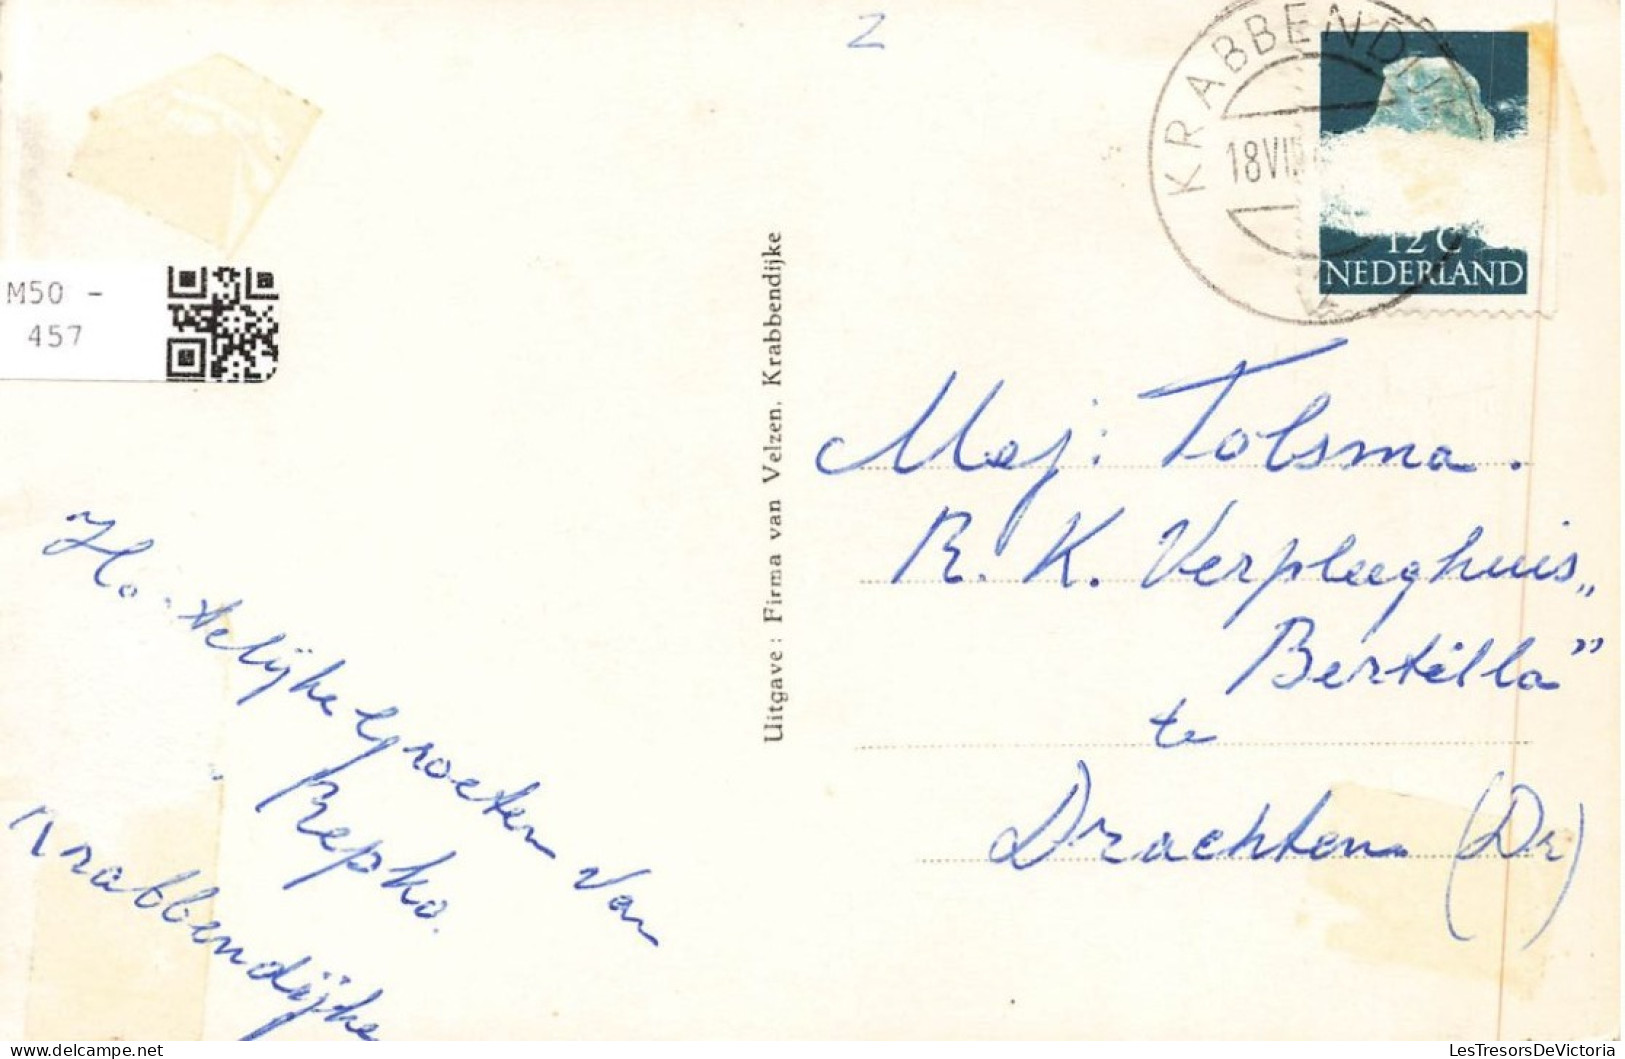 2
KRABBENDIJ
18 VII
12 C
NEDERLAND
M50 -
457
Uitgave : Firma van Velzen, Krabbendijke
Mej: Tolsma.
R. K. Verpleeghuis „
Bertilla”
te
Drachten (Dr)
Ha telijke Groeten van
Repko.
Krabbendijke
LesTresorsDeVictoria